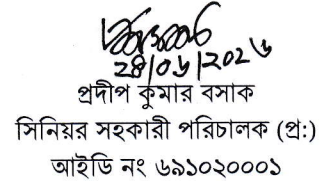 ২৪/০৬/২০২৬
প্রদীপ কুমার বসাক
সিনিয়র সহকারী পরিচালক (প্র:)
আইডি নং ৬৯১০২০০০১